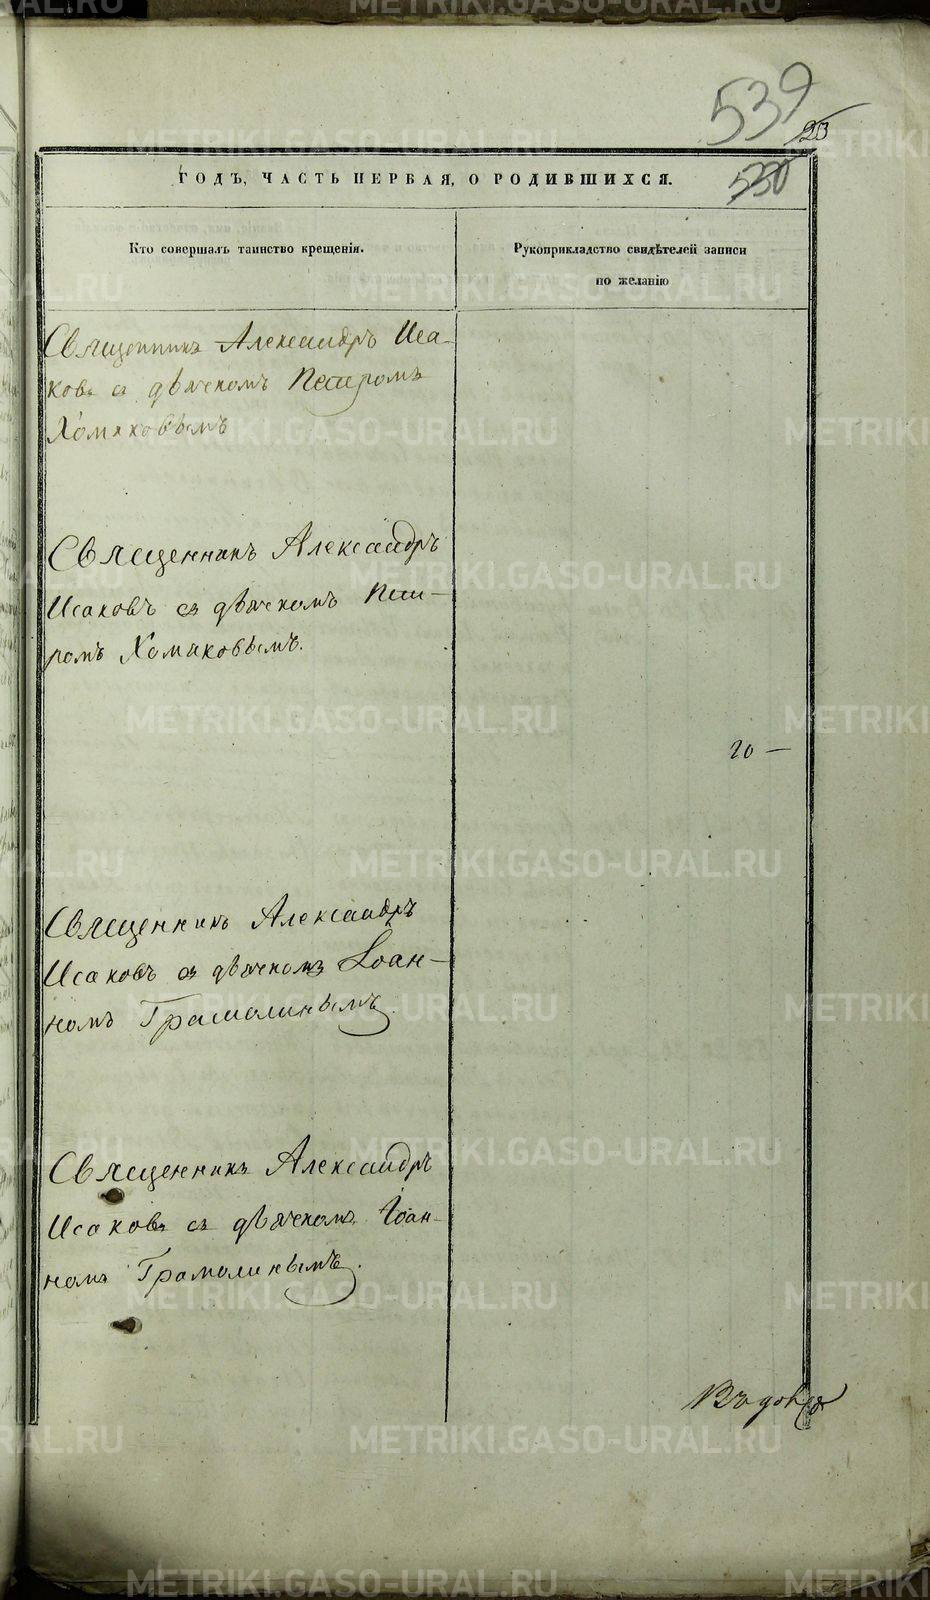 539
23
530
ГОДЪ, ЧАСТЬ ПЕРВАЯ, О РОДИВШИХСЯ.
Кто совершалъ таинство крещенія.
Рукоприкладство свидѣтелей записи
по желанію
Священникъ Александръ Иса-
ковъ съ дьячкомъ Петромъ
Хомяковымъ
Священникъ Александръ
Исаковъ съ дьячкомъ Пет-
ромъ Хомяковымъ.
20 —
Священникъ Александръ
Исаковъ съ дьячкомъ Іоан-
номъ Грамолинымъ.
Священникъ Александръ
Исаковъ съ дьячкомъ Іоан-
номъ Грамолинымъ.
METRIKI.GASO-URAL.RU